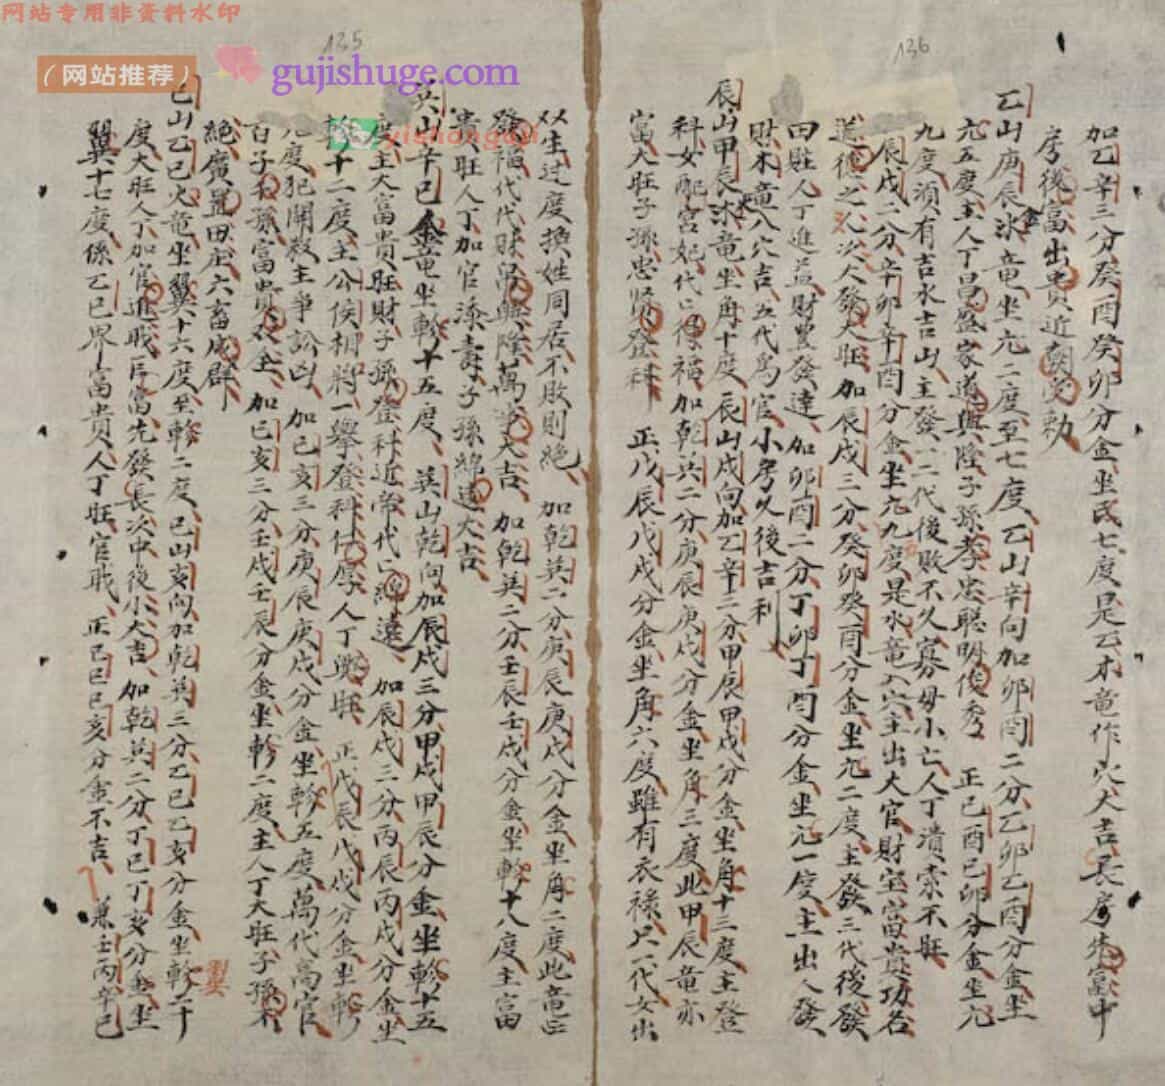 网站专用非资料水印
135
136
（网站推荐）
gujishuge.com
yishengui
加乙辛三分癸酉癸卯分金坐氐七度是乙木竜作穴大吉長房先富中
房後富出貴近朝受勅
乙山庚辰氷金竜坐亢二度至七度乙山辛向加卯酉二分乙卯乙酉分金坐
亢五度主人丁昌盛家道興隆子孫孝忠聰明俊秀 正己酉己卯分金坐亢
九度須有吉水吉山主發一二代後敗不久寡母小亡人丁潰索不旺
辰戌二分辛卯辛酉分金坐亢九度是水竜入穴主出大官財宝富貴功名
道德之人次久發大旺加辰戌三分癸卯癸酉分金坐亢二度主發三代後發
田壯人丁進益財豊發達加卯酉二分丁卯丁酉分金坐亢一度主出人發
財木竜入穴吉五代為官小房久後吉利
辰山甲辰水竜坐角十度辰山戌向加乙辛二分甲辰甲戌分金坐角十三度主登
科女配宮妃代代得福加乾巽二分庚辰庚戌分金坐角三度此甲辰竜亦
富大旺子孫忠賢登科 正戊辰戊戌分金坐角六度雖有衣祿只一代女出
以生过度換姓同居不敗則絕 加乾巽二分庚辰庚戌分金坐角二度此竜正
發福代代財帛興隆萬事大吉 加乾巽二分壬辰壬戌分金坐軫十八度主富
貴旺人丁加官添壽子孫綿遠大吉
巽山辛巳金竜坐軫十五度 巽山乾向加辰戌三分甲戌甲辰分金坐軫十五
度主大富貴旺財子孫登科近帝代代綿遠 加辰戌二分丙辰丙戌分金坐
軫十二度主公侯相將一舉登科仁厚人丁興旺 正戊辰戊戌分金坐軫
九度犯關殺主爭訟凶 加巳亥三分庚辰庚戌分金坐軫五度萬代高官
百子千孫富貴双全 加巳亥三分壬戌壬辰分金坐軫二度主人丁大旺子孫不
絕廣置田庄六畜成群
巳山乙巳火竜坐翼十六度至軫二度巳山亥向加乾巽三分乙巳乙亥分金坐軫二十
度大旺人丁加官進職巨富先發長次中後小大吉 加乾巽二分丁巳丁亥分金坐
翼十七度係乙巳界富貴人丁旺官職 正己巳己亥分金不吉 兼壬丙辛巳